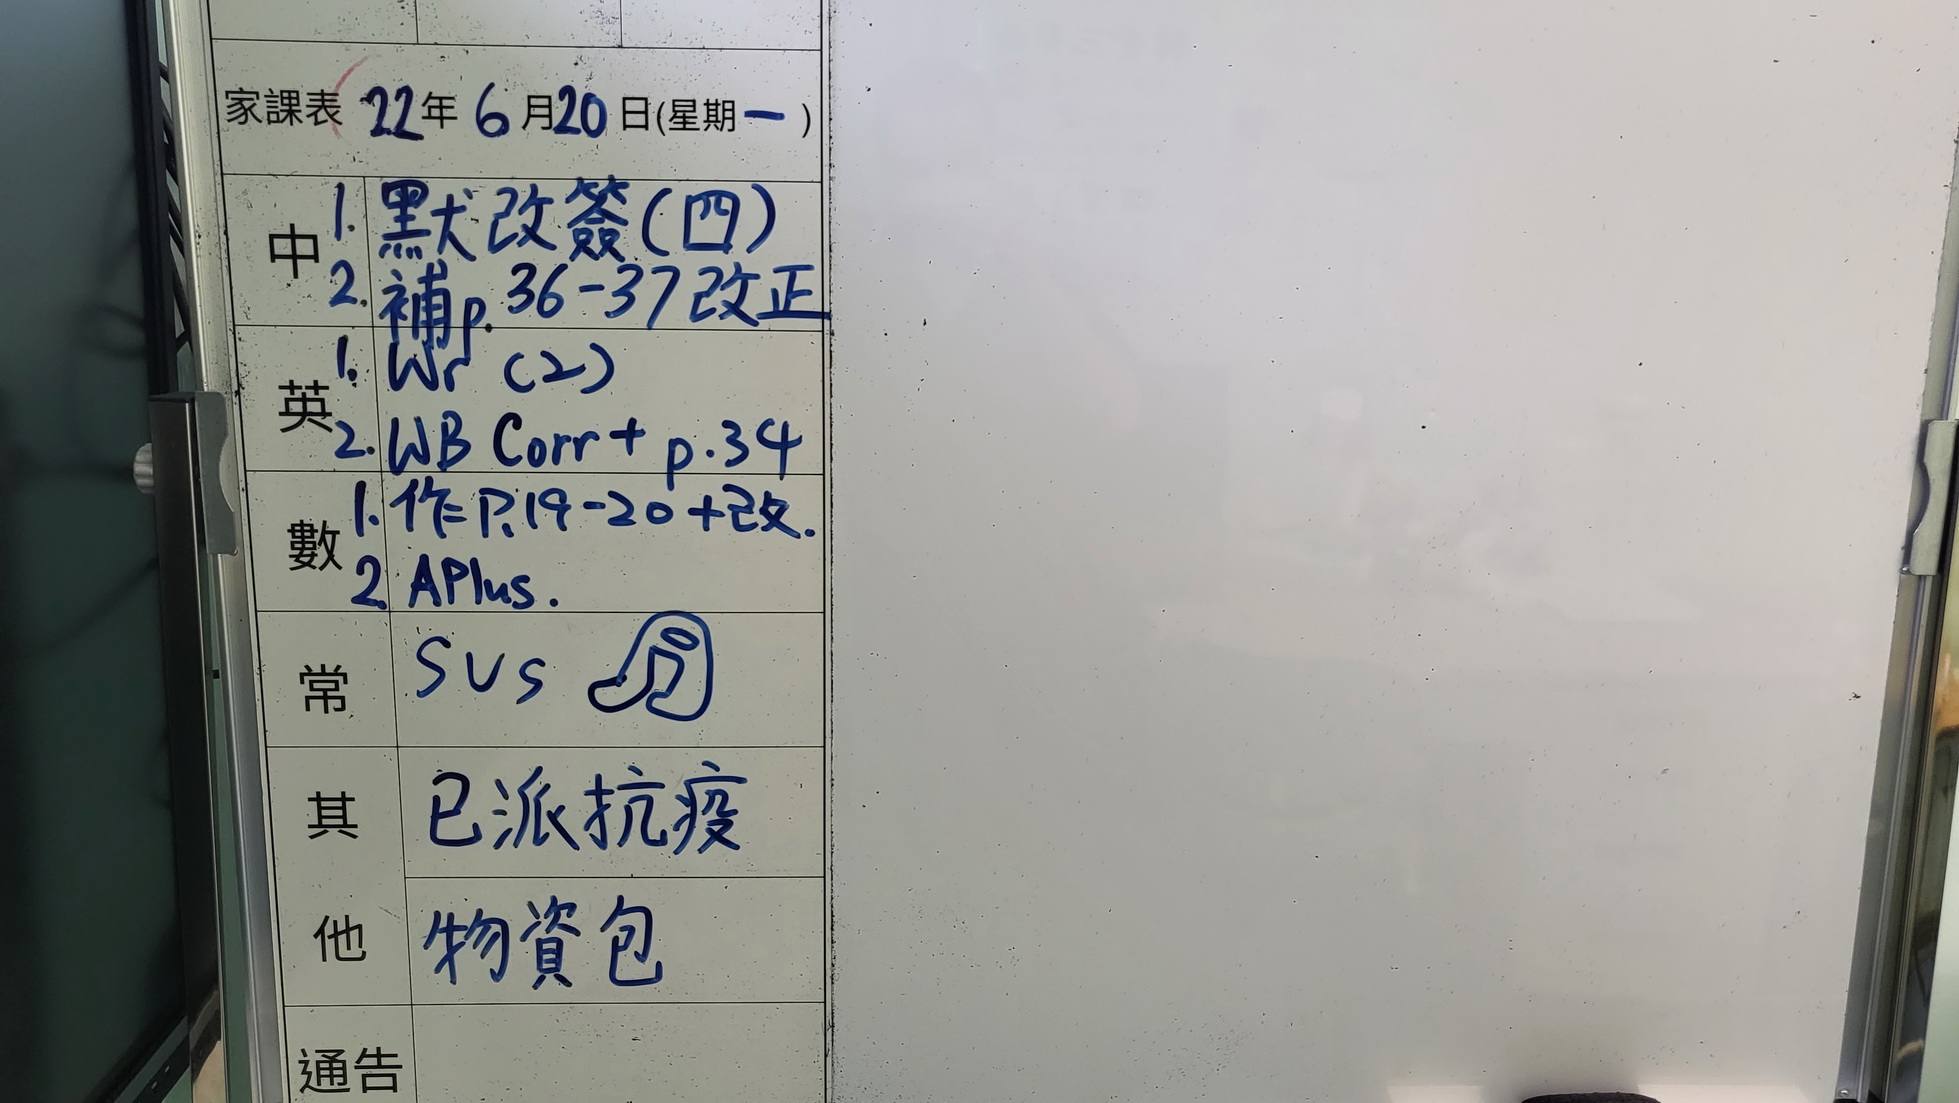 家課表 22年 6月20日(星期一)
中 1. 默改簽(四)
2. 補p. 36-37改正
英 1. Wr (2)
2. WB Corr + p.34
數 1. 作P.19-20+改.
2. APlus.
常 SVS
其 已派抗疫
他 物資包
通告